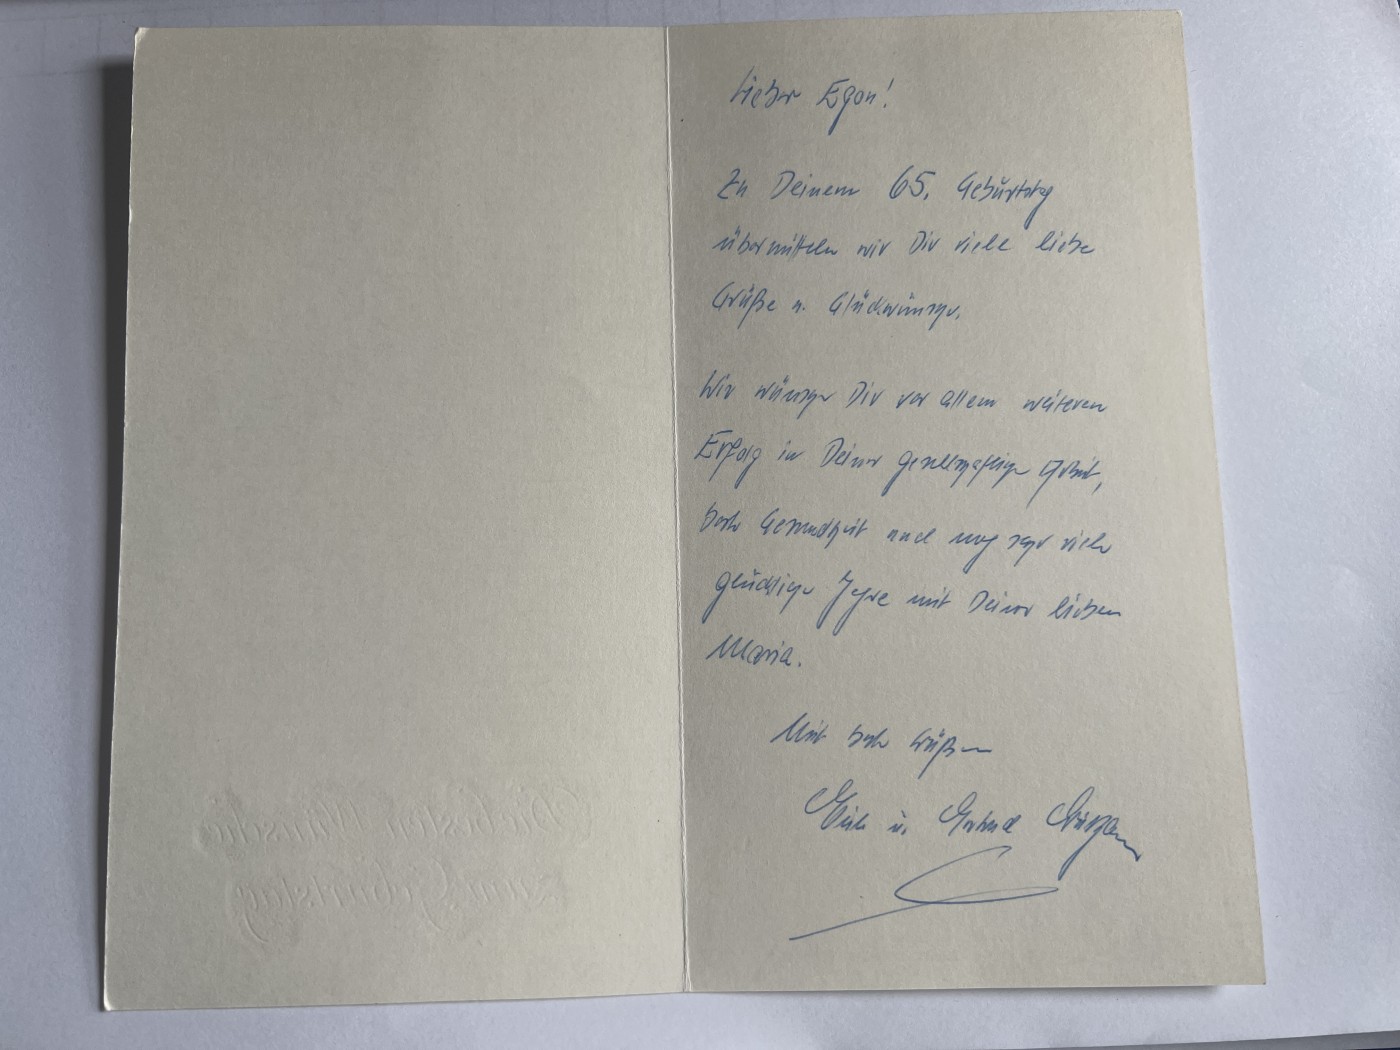 Lieber Egon!
Zu Deinem 65. Geburtstag
übermitteln wir Dir viele liebe
Grüße u. Glückwünsche.
Wir wünschen Dir vor allem weiteren
Erfolg in Deiner geschäftlichen Arbeit,
beste Gesundheit und noch sehr viele
glückliche Jahre mit Deiner lieben
Maria.
Mit besten Grüßen
u. Gertrud
Die besten Wünsche
zum Geburtstag